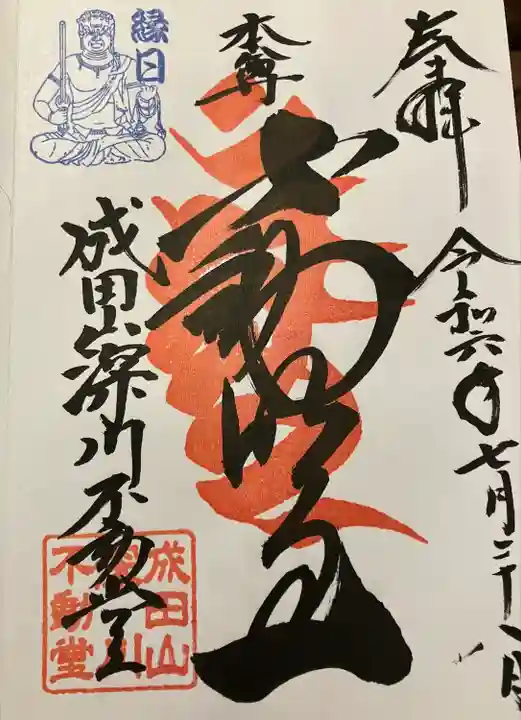 奉拝
令和六年七月二十八日
本尊
不動明王
縁日
成田山深川不動堂
成田山
深川
不動堂